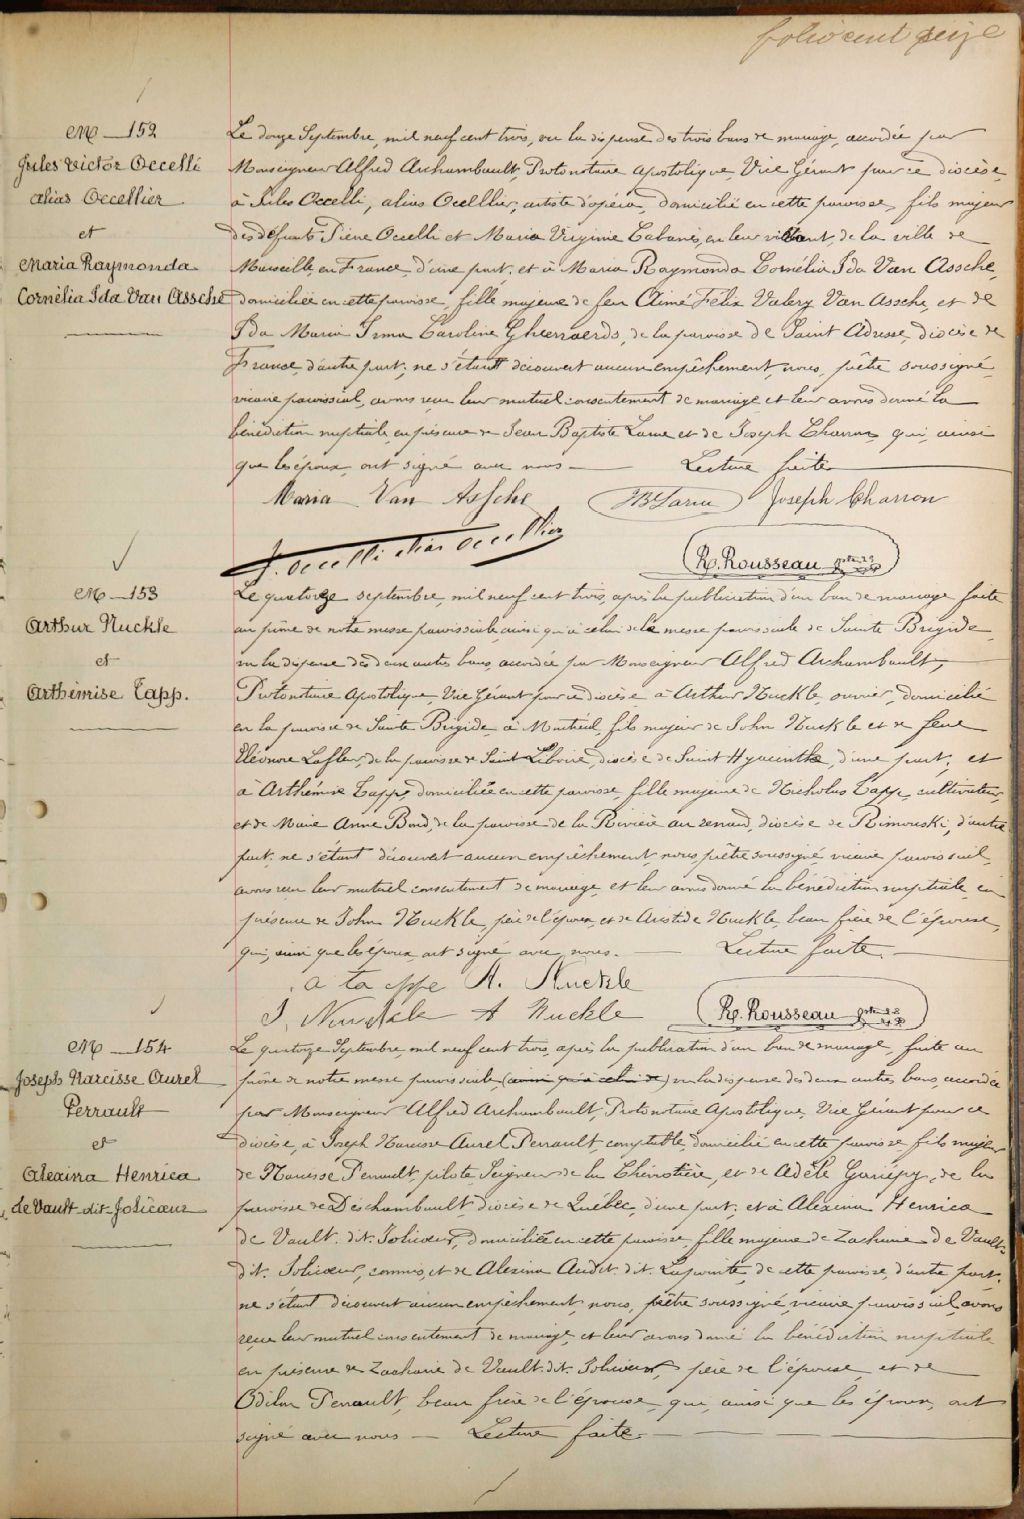 folio cent seize
M — 152
Jules Victor Occelli
alias Occellier
et
Maria Raymonda
Cornélia Ida Van Assche
Le douze Septembre, mil neuf cent trois, vu la dispense des trois bans de mariage, accordée par
Monseigneur Alfred Archambault, Protonotaire Apostolique, Vice Gérant pour ce diocèse,
à Jules Occelli, alias Ocelllier, artiste d'opéra, domicilié en cette paroisse, fils majeur
des défunts Pierre Occelli et Maria Virginie Cabanis, en leur vivant, de la ville de
Marseille, en France, d'une part, et à Maria Raymonda Cornélia Ida Van Assche,
domiciliée en cette paroisse, fille majeure de feu Aimé Félix Valery Van Assche, et de
Ida Maria Irma Caroline Gheeraerds, de la paroisse de Saint Adresse, diocèse de
France, d'autre part; ne s'étant découvert aucun empêchement, nous, prêtre soussigné,
vicaire paroissial, avons reçu leur mutuel consentement de mariage et leur avons donné la
bénédiction nuptiale, en présence de Jean Baptiste Larue et de Joseph Charron, qui, ainsi
que les époux, ont signé avec nous — Lecture faite
Maria Van Assche JBLarue Joseph Charron
J. Occelli alias Occellier
R. Rousseau ptre
M — 153
Arthur Nuckle
et
Arthémise Tapp.
Le quatorze septembre, mil neuf cent trois, après la publication d'un ban de mariage faite
au prône de notre messe paroissiale, ainsi qu'à celui de la messe paroissiale de Sainte Brigide,
vu la dispense des deux autres bans, accordée par Monseigneur Alfred Archambault,
Protonotaire Apostolique, Vice Gérant pour ce diocèse à Arthur Nuckle, ouvrier, domicilié
en la paroisse de Sainte Brigide, à Montréal, fils majeur de John Nuckle et de feue
Eléonore Lafleur, de la paroisse de Saint Liboire, diocèse de Saint Hyacinthe, d'une part, et
à Arthémise Tapp, domiciliée en cette paroisse, fille majeure de Nicholas Tapp, cultivateur,
et de Marie Anne Bond, de la paroisse de la Rivière au renard, diocèse de Rimouski, d'autre
part; ne s'étant découvert aucun empêchement, nous, prêtre soussigné, vicaire paroissial,
avons reçu leur mutuel consentement de mariage, et leur avons donné la bénédiction nuptiale en
présence de John Nuckle, père de l'époux, et de Aristide Nuckle, beau frère de l'épouse,
qui, ainsi que les époux, ont signé avec nous. — Lecture faite.
a tappe A. Nuckle
J. Nuckle A Nuckle
R. Rousseau ptre
M — 154
Joseph Narcisse Aurel
Perrault
et
Alexina Henrica
de Vault-dit-Jolicœur
Le quatorze Septembre, mil neuf cent trois, après la publication d'un ban de mariage, faite au
prône de notre messe paroissiale (ainsi qu'à celui de) vu la dispense des deux autres bans, accordée
par Monseigneur Alfred Archambault, Protonotaire Apostolique, Vice Gérant pour ce
diocèse, à Joseph Narcisse Aurel Perrault, comptable, domicilié en cette paroisse, fils majeur
de Narcisse Perrault, pilote Seigneur de la Chevrotière, et de Adèle Gariépy, de la
paroisse de Deschambault diocèse de Québec, d'une part; et à Alexina Henrica
de Vault-dit-Jolicœur, domiciliée en cette paroisse, fille majeure de Zacharie de Vault-
dit-Jolicœur, commis, et de Alexina Audet-dit-Lapointe, de cette paroisse, d'autre part,
ne s'étant découvert aucun empêchement, nous, prêtre soussigné, vicaire paroissial, avons
reçu leur mutuel consentement de mariage, et leur avons donné la bénédiction nuptiale
en présence de Zacharie de Vault-dit-Jolicœur, père de l'épouse, et de
Odilon Perrault, beau frère de l'épouse, qui, ainsi que les époux, ont
signé avec nous — Lecture faite.